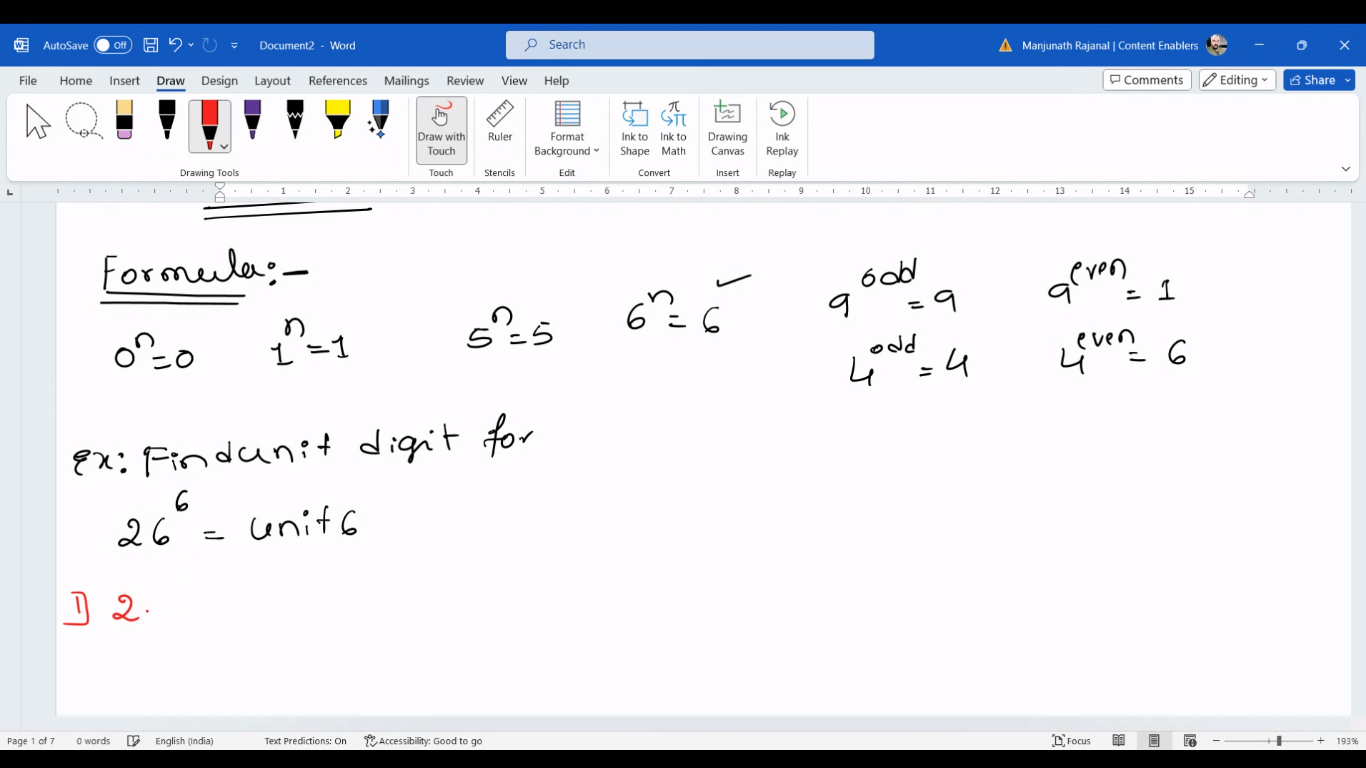 AutoSave Off Document2 - Word Search Manjunath Rajanal | Content Enablers
File Home Insert Draw Design Layout References Mailings Review View Help Comments Editing Share
Draw with Touch Ruler Format Background Ink to Shape Ink to Math Drawing Canvas Ink Replay
Drawing Tools Touch Stencils Edit Convert Insert Replay
1 2 3 4 5 6 7 8 9 10 11 12 13 14 15
Formula:-
0ⁿ=0 1ⁿ=1 5ⁿ=5 6ⁿ=6 ✓ 9^odd = 9 9^even = 1
4^odd = 4 4^even = 6
Ex: Find unit digit for
26⁶ = unit 6
1) 2.
Page 1 of 7 0 words English (India) Text Predictions: On Accessibility: Good to go Focus 193%